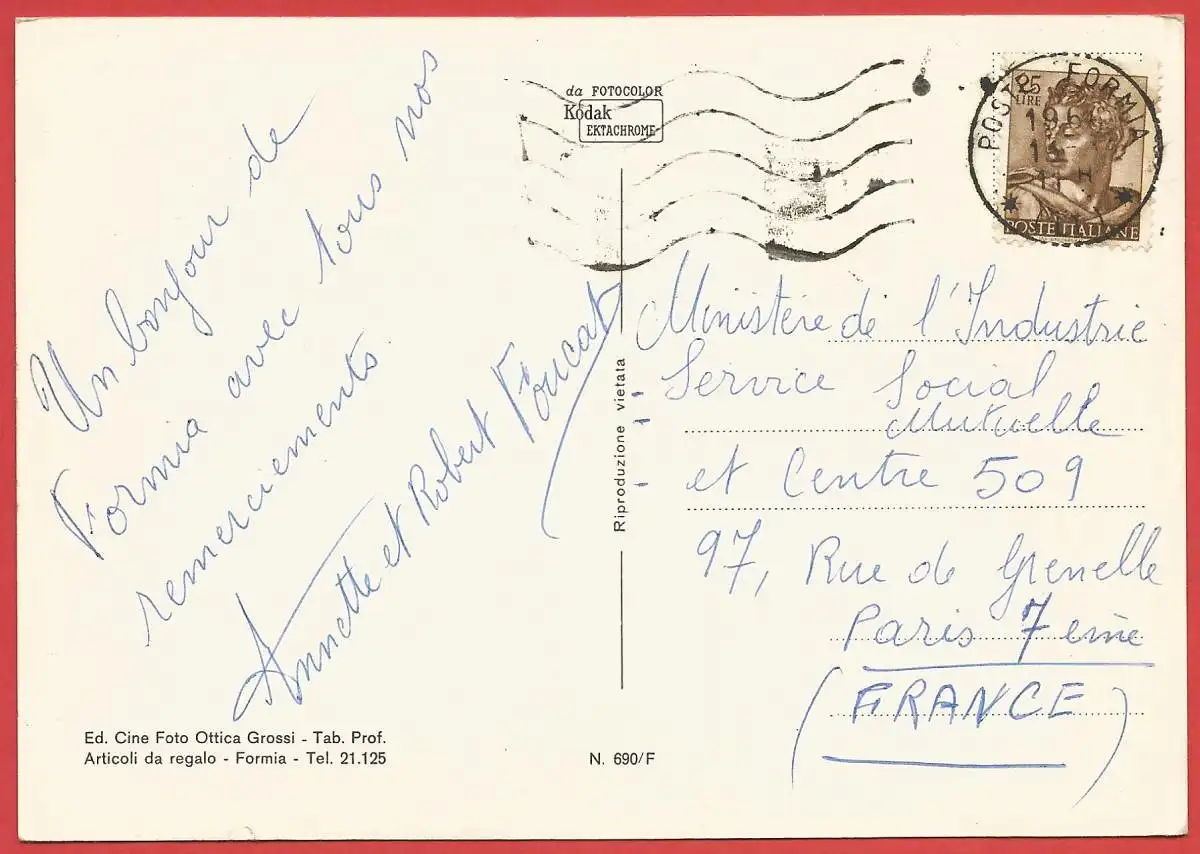 Un bonjour de
Formia avec tous nos
remerciements
Annette et Robert Foucat
Ed. Cine Foto Ottica Grossi - Tab. Prof.
Articoli da regalo - Formia - Tel. 21.125
da FOTOCOLOR
Kodak
EKTACHROME
Riproduzione vietata
N. 690/F
POSTE FORMIA
25
LIRE
POSTE ITALIANE
Ministère de l'Industrie
- Service Social
- Mutuelle
- et Centre 509
97, Rue de Grenelle
Paris 7 eme
(FRANCE)